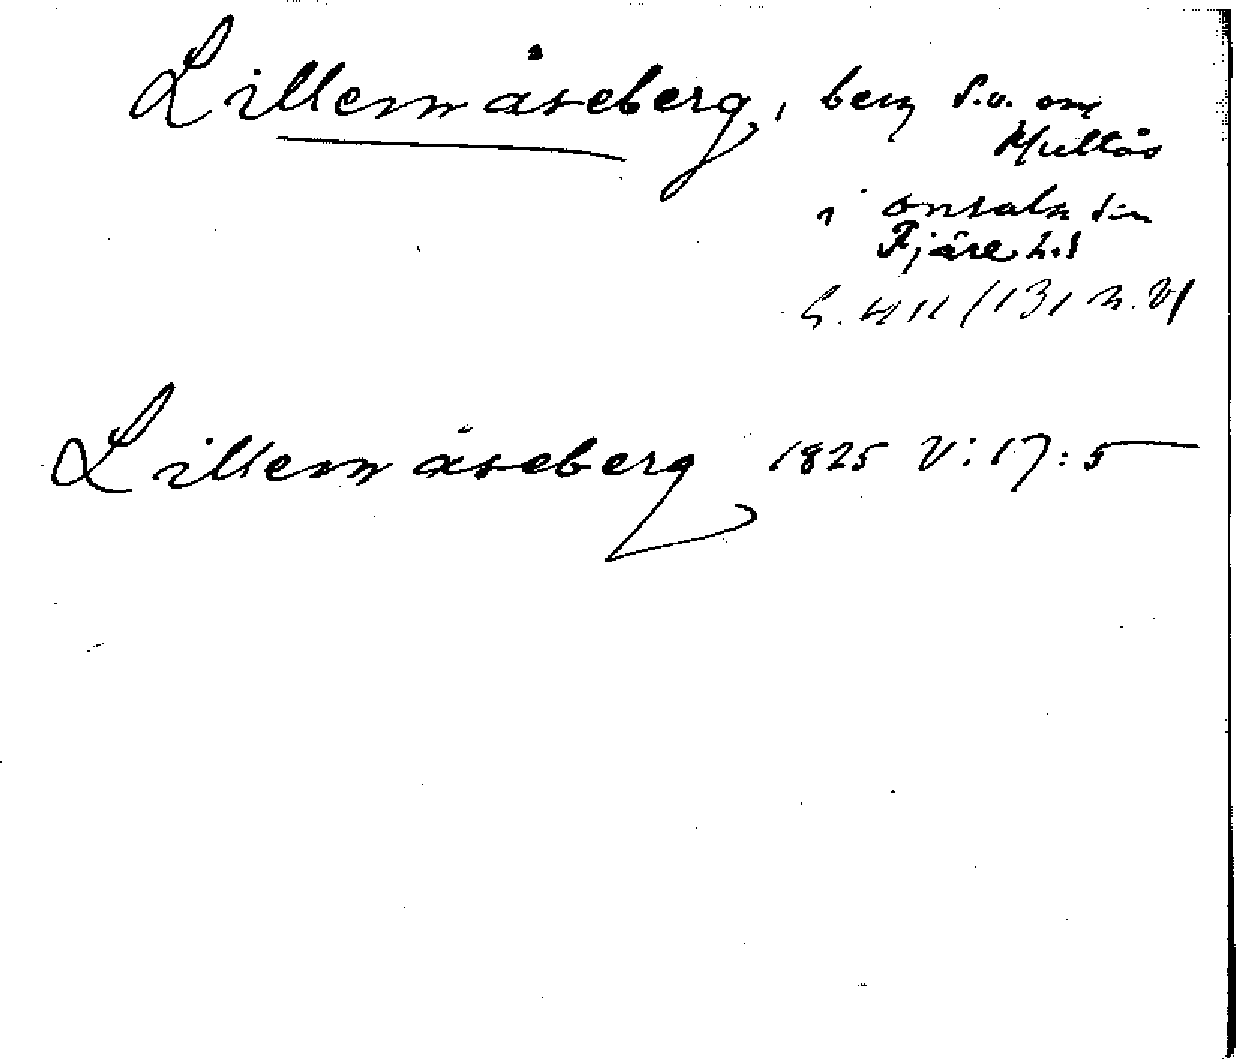 Lillemåseberg, berg S.v. om
Mullås
i Onsala sn
Fjäre hd
Lillemåseberg 1825 V:17:5